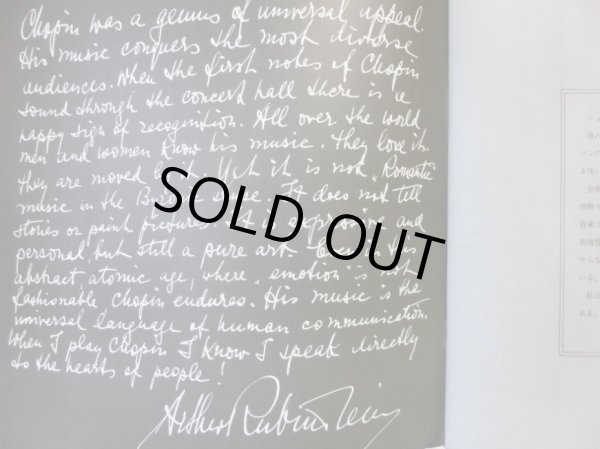 Chopin was a genius of universal appeal.
His music conquers the most diverse
audiences. When the first notes of Chopin
sound through the concert hall there is a
happy sign of recognition. All over the world
men and women know his music. They love it.
They are moved by it. Yet it is not "Romantic"
music in the sense. It does not tell
stories or paint pictures. It is expressive and
personal, but still a pure art. Even in this
abstract atomic age, where "emotion" is not
fashionable Chopin endures. His music is the
universal language of human communication.
When I play Chopin I know I speak directly
to the hearts of people!
Arthur Rubinstein
SOLD OUT
ショ
彼の
パンの
る快い
全世
感動す
音楽で
表情豊
やんな
いる。
私は
ある。